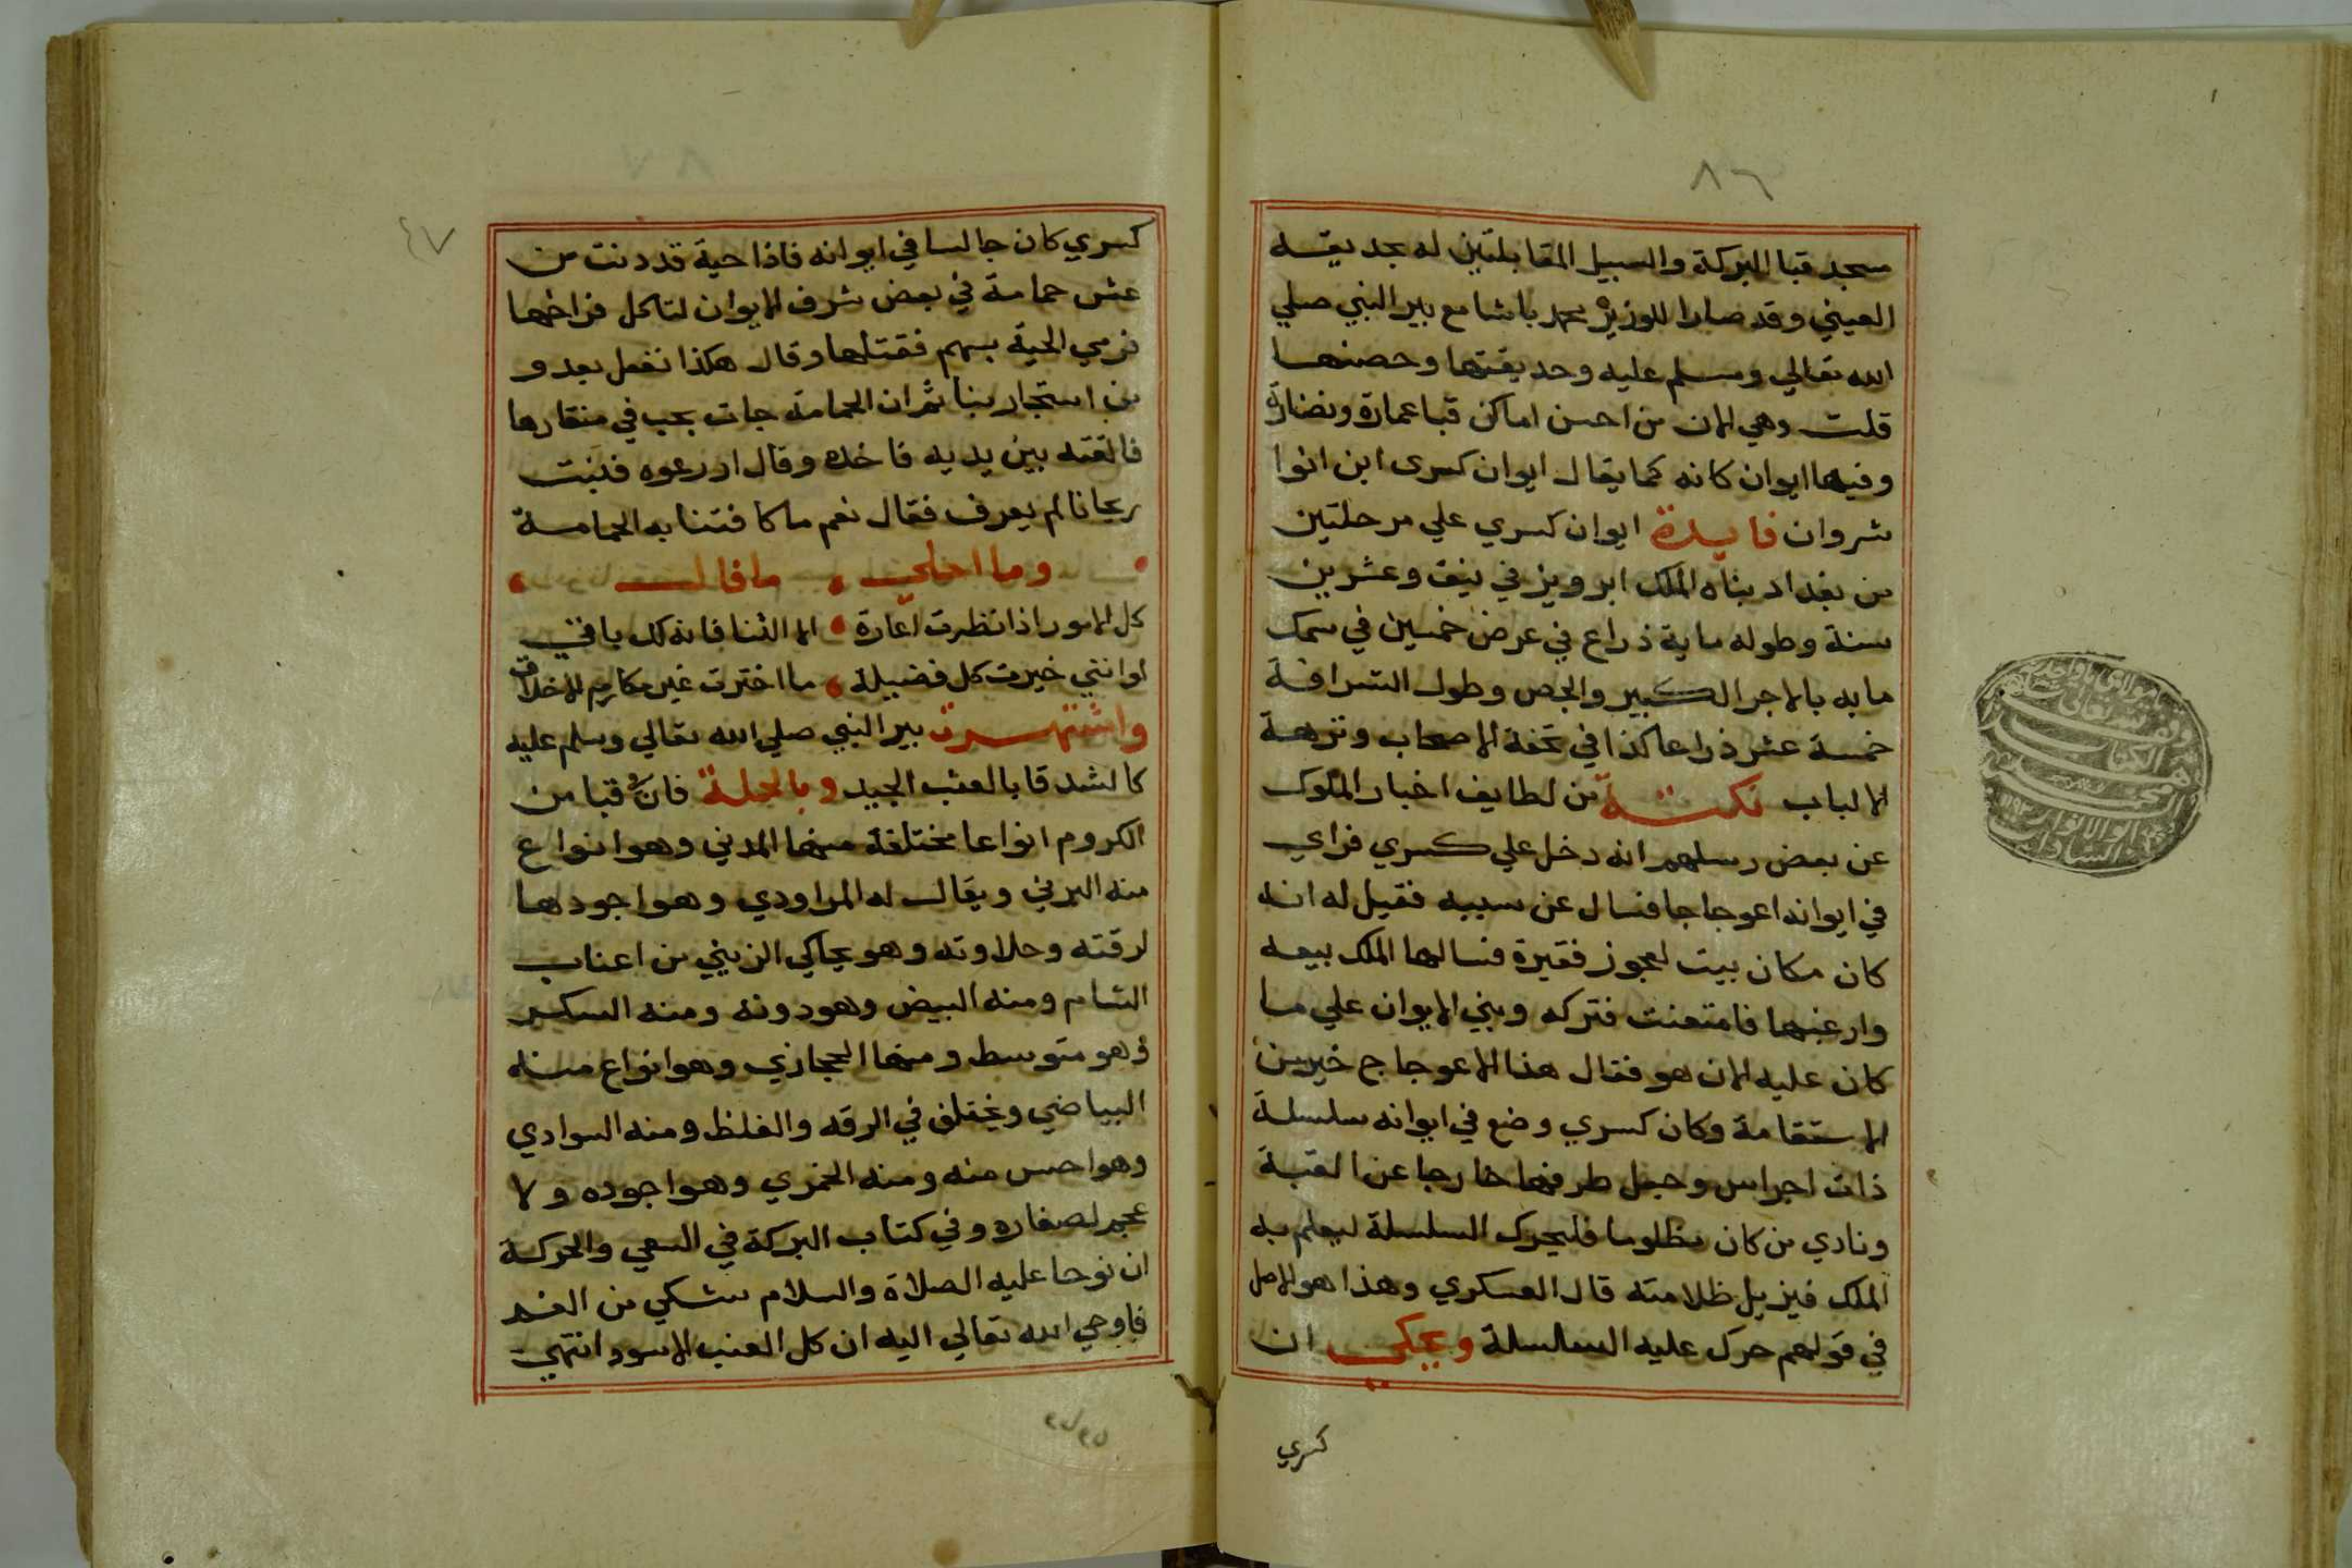 ٨٦
مسجد قبا البركة والسبيل المقابلتين له بحديقه
العيني وقد صارا للوزير محمد باشا مع بير النبي صلي
الله تعالي وسلم عليه وحديقتها وحصنها
قلت وهي الان من احسن اماكن قبا عمارة ونضارة
وفيها ايوان كانه كما يقال ايوان كسرى ابن انوا
شروان فايدة ايوان كسري علي مرحلتين
من بغداد بناه الملك ابرويز في نيف وعشرين
سنة وطوله ماية ذراع في عرض خمسين في سمك
مايه بالاجر الكبير والجص وطول الشرافة
خمسة عشر ذراعا كذا في تحفة الاصحاب ونزهة
الالباب نكتة من لطايف اخبار الملوك
عن بعض رسلهم انه دخل علي كسري فراي
في ايوانه اعوجاجا فسال عن سببه فقيل له انه
كان مكان بيت لعجوز فقيرة فسالها الملك بيعه
وارغبها فامتعنت فتركه وبني الايوان علي ما
كان عليه الان هو فقال هذا الاعوجاج خير من
الاستقامة وكان كسري وضع في ايوانه سلسلة
ذات اجراس وجعل طرفها خارجا عن القبة
ونادي من كان مظلوما فليحرك السلسلة ليعلم به
الملك فيزيل ظلامته قال العسكري وهذا هو الاصل
في قولهم حرك عليه السلسلة ويحكى ان
كسري
٤٧
كسري كان جالسا في ايوانه فاذا حية قد دنت من
عش حمامة في بعض شرف الايوان لتاكل فراخها
فرمي الحية بسهم فقتلها وقال هكذا نفعل بعدو
من استجار بنا ثم ان الحمامة جات بحب في منقارها
فالقته بين يديه فاخذه وقال ازرعوه فنبت
ريحانا لم يعرف فقال نعم ما كافتنا به الحمامة
وما احلي ما قال
كل الامور اذا نظرت اعارة الا الثنا فانه لك باقي
لو انني خيرت كل فضيلة ما اخترت غير مكارم الاخلاق
واشتهرت بير النبي صلي الله تعالي وسلم عليه
كالشدقا بالعنب الجيد وبالجملة فان قبا من
الكروم انواعا مختلفة منها المدني وهو انواع
منه البرني ويقال له المراودي وهو اجودها
لرقته وحلاوته وهو يحاكي الزيني من اعناب
الشام ومنه البيض وهو دونه ومنه السكر
وهو متوسط ومنها الحجازي وهو انواع منه
البياضي ويختلف في الرقه والغلظ ومنه السوادي
وهو احسن منه ومنه الخمري وهو اجوده ولا
عجم لصغاره وفي كتاب البركة في السعي والحركة
ان نوحا عليه الصلاة والسلام شكي من الغم
فاوحي الله تعالي اليه ان كل العنب الاسود انتهي